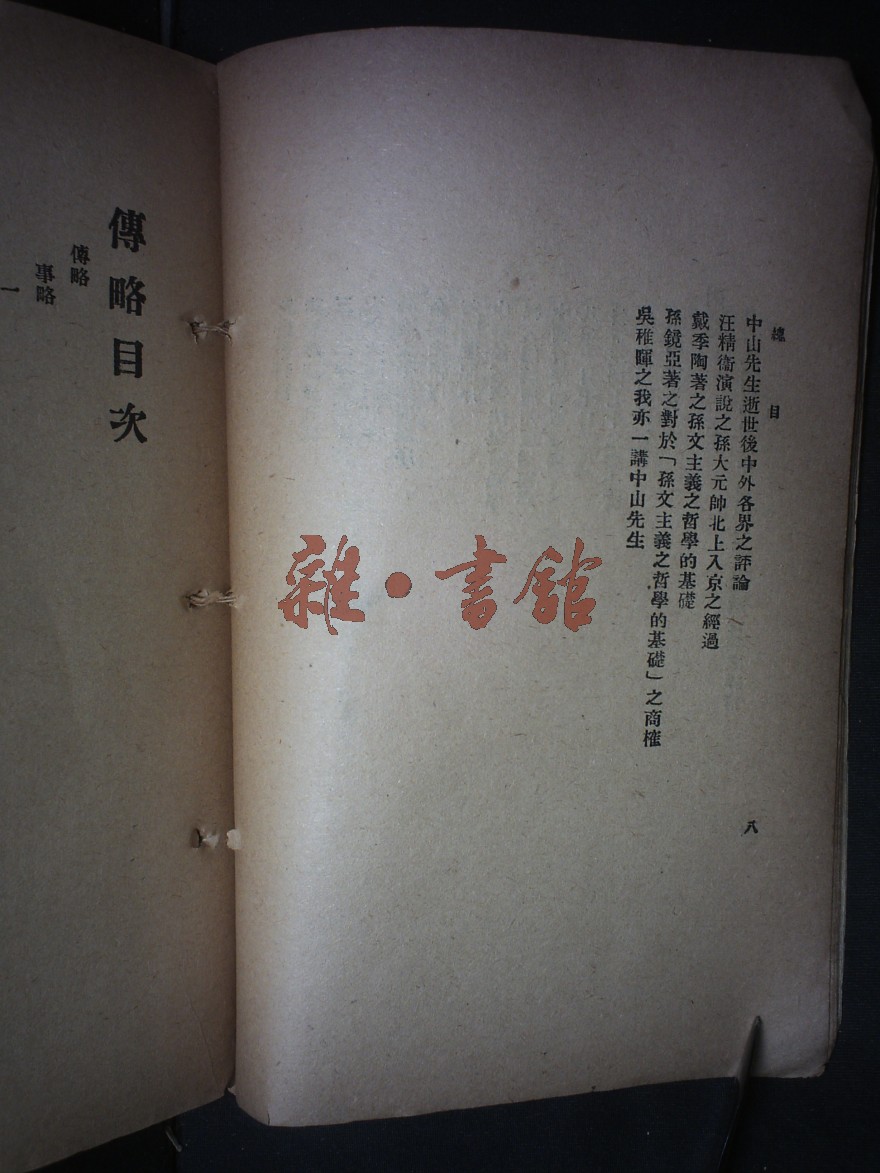 總目
中山先生逝世後中外各界之評論
汪精衛演說之孫大元帥北上入京之經過
戴季陶著之孫文主義之哲學的基礎
孫鏡亞著之對於「孫文主義之哲學的基礎」之商榷
吳稚暉之我亦一講中山先生
八
傳略目次
傳略
事略
一
雜·書館